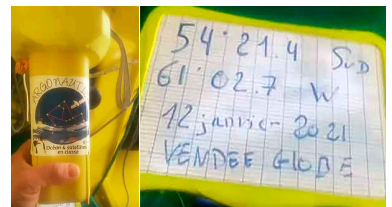 ARGONAUTICA
Océan & satellites
en classe
54° 21.4 SUD
61° 02.7 W
12 janvier 2021
VENDEE GLOBE